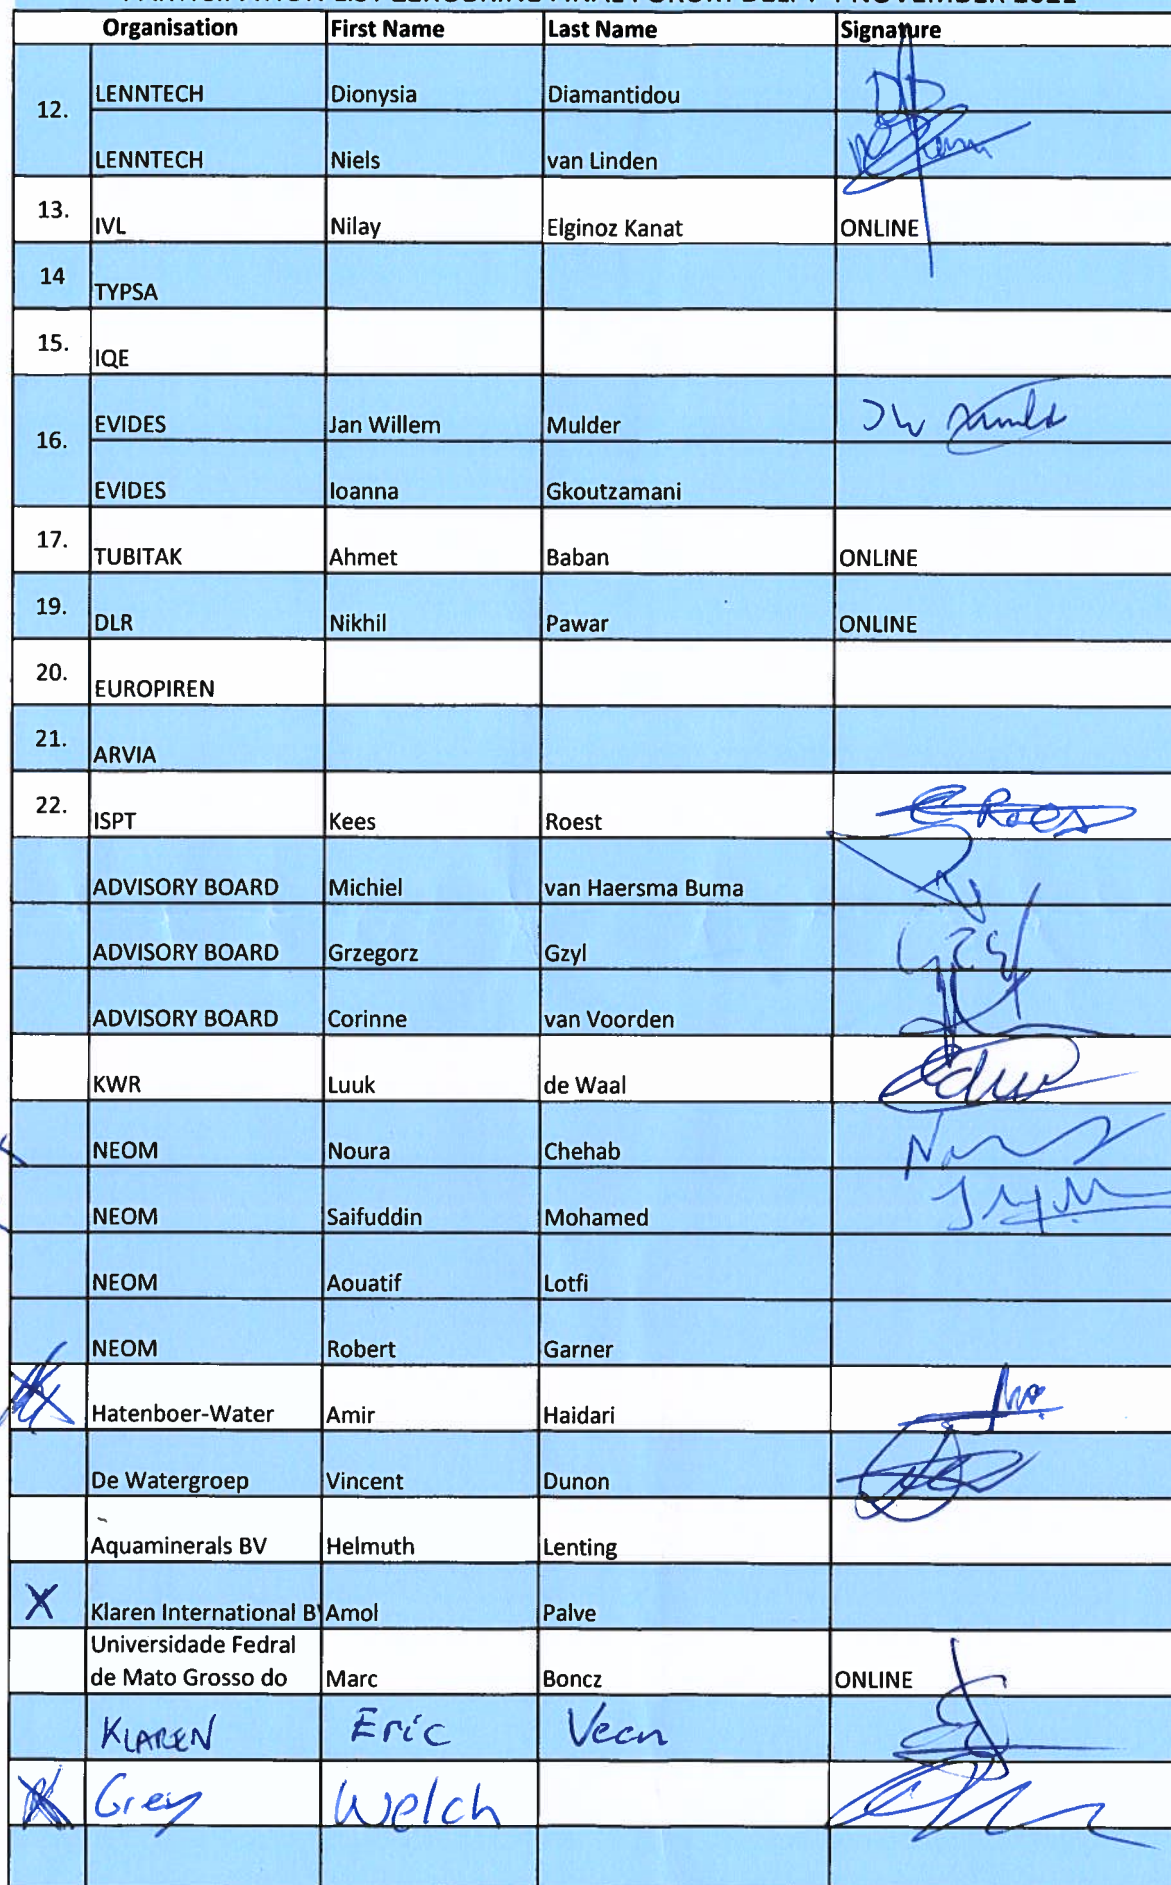 Organisation First Name Last Name Signature
12. LENNTECH Dionysia Diamantidou
LENNTECH Niels van Linden
13. IVL Nilay Elginoz Kanat ONLINE
14 TYPSA
15. IQE
16. EVIDES Jan Willem Mulder
EVIDES Ioanna Gkoutzamani
17. TUBITAK Ahmet Baban ONLINE
19. DLR Nikhil Pawar ONLINE
20. EUROPIREN
21. ARVIA
22. ISPT Kees Roest
ADVISORY BOARD Michiel van Haersma Buma
ADVISORY BOARD Grzegorz Gzyl
ADVISORY BOARD Corinne van Voorden
KWR Luuk de Waal
NEOM Noura Chehab
NEOM Saifuddin Mohamed
NEOM Aouatif Lotfi
NEOM Robert Garner
Hatenboer-Water Amir Haidari
De Watergroep Vincent Dunon
Aquaminerals BV Helmuth Lenting
X Klaren International B Amol Palve
Universidade Fedral
de Mato Grosso do Marc Boncz ONLINE
KLAREN Eric Veen
Welch